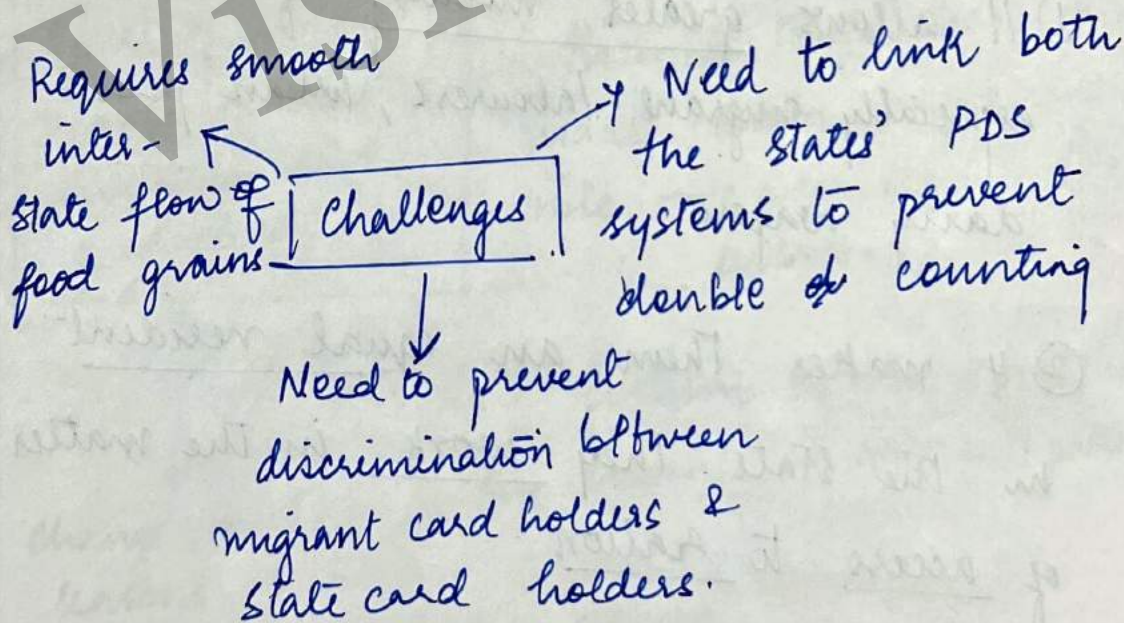 Visi
Requires smooth
inter-
state flow of
food grains
Challenges
Need to link both
the states' PDS
systems to prevent
double counting
Need to prevent
discrimination between
migrant card holders &
state card holders.